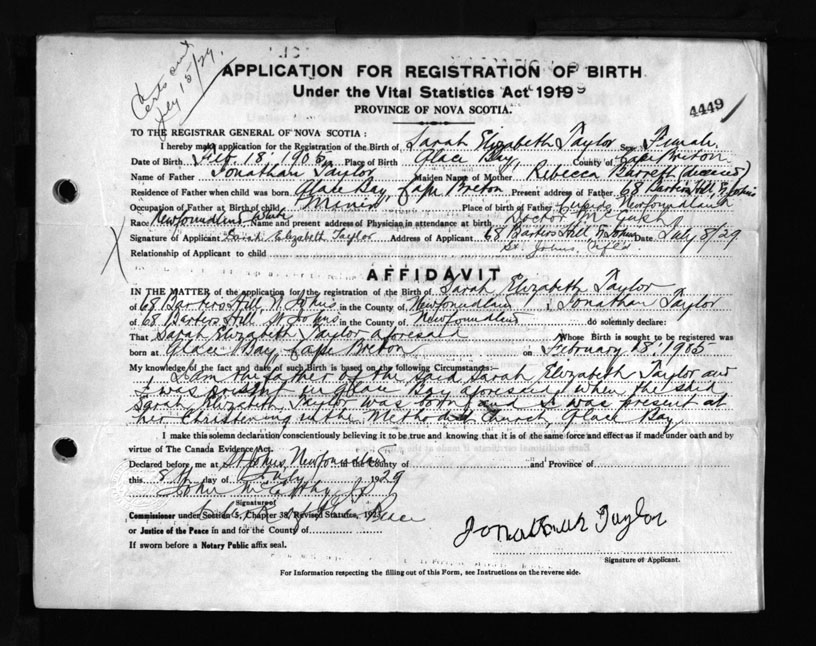 Certs sent
July 15/29.
APPLICATION FOR REGISTRATION OF BIRTH
Under the Vital Statistics Act 1919
PROVINCE OF NOVA SCOTIA.
4449
TO THE REGISTRAR GENERAL OF NOVA SCOTIA:
I hereby make application for the Registration of the Birth of Sarah Elizabeth Taylor Sex Female
Date of Birth Feb 18, 1905 Place of Birth Glace Bay, County of Cape Breton
Name of Father Jonathan Taylor Maiden Name of Mother Rebecca Barrett (deceased)
Residence of Father when child was born Glace Bay Cape Breton Present address of Father 68 Barters Hill St Johns
Occupation of Father at Birth of child Miner Place of birth of Father Newfoundland
Race Newfoundland White Name and present address of Physician in attendance at birth Doctor
Signature of Applicant Sarah Elizabeth Taylor Address of Applicant 68 Barters Hill St Johns Date July 8/29
St. Johns, Nfld
Relationship of Applicant to child
AFFIDAVIT
IN THE MATTER of the application for the registration of the Birth of Sarah Elizabeth Taylor
of 68 Barters Hill St Johns in the County of Newfoundland I, Jonathan Taylor
of 68 Barters Hill St Johns in the County of Newfoundland do solemnly declare:
That Sarah Elizabeth Taylor aforesaid Whose Birth is sought to be registered was
born at Glace Bay, Cape Breton on February 18, 1905
My knowledge of the fact and date of such Birth is based on the following Circumstances:—
I am the father of the said Sarah Elizabeth Taylor and
I was present in Glace Bay aforesaid when the said
Sarah Elizabeth Taylor was born and I was present at
her Christening in the Methodist Church, Glace Bay
I make this solemn declaration conscientiously believing it to be true and knowing that it is of the same force and effect as if made under oath and by
virtue of The Canada Evidence Act.
Declared before me at St Johns, Newfoundland in the County of and Province of
this 8th day of July 1929
John McCarthy J.P.
Signature of
Commissioner under Section 6, Chapter 38, Revised Statutes, 1923
or Justice of the Peace in and for the County of
If sworn before a Notary Public affix seal.
Jonathan Taylor
Signature of Applicant.
For Information respecting the filling out of this Form, see Instructions on the reverse side.